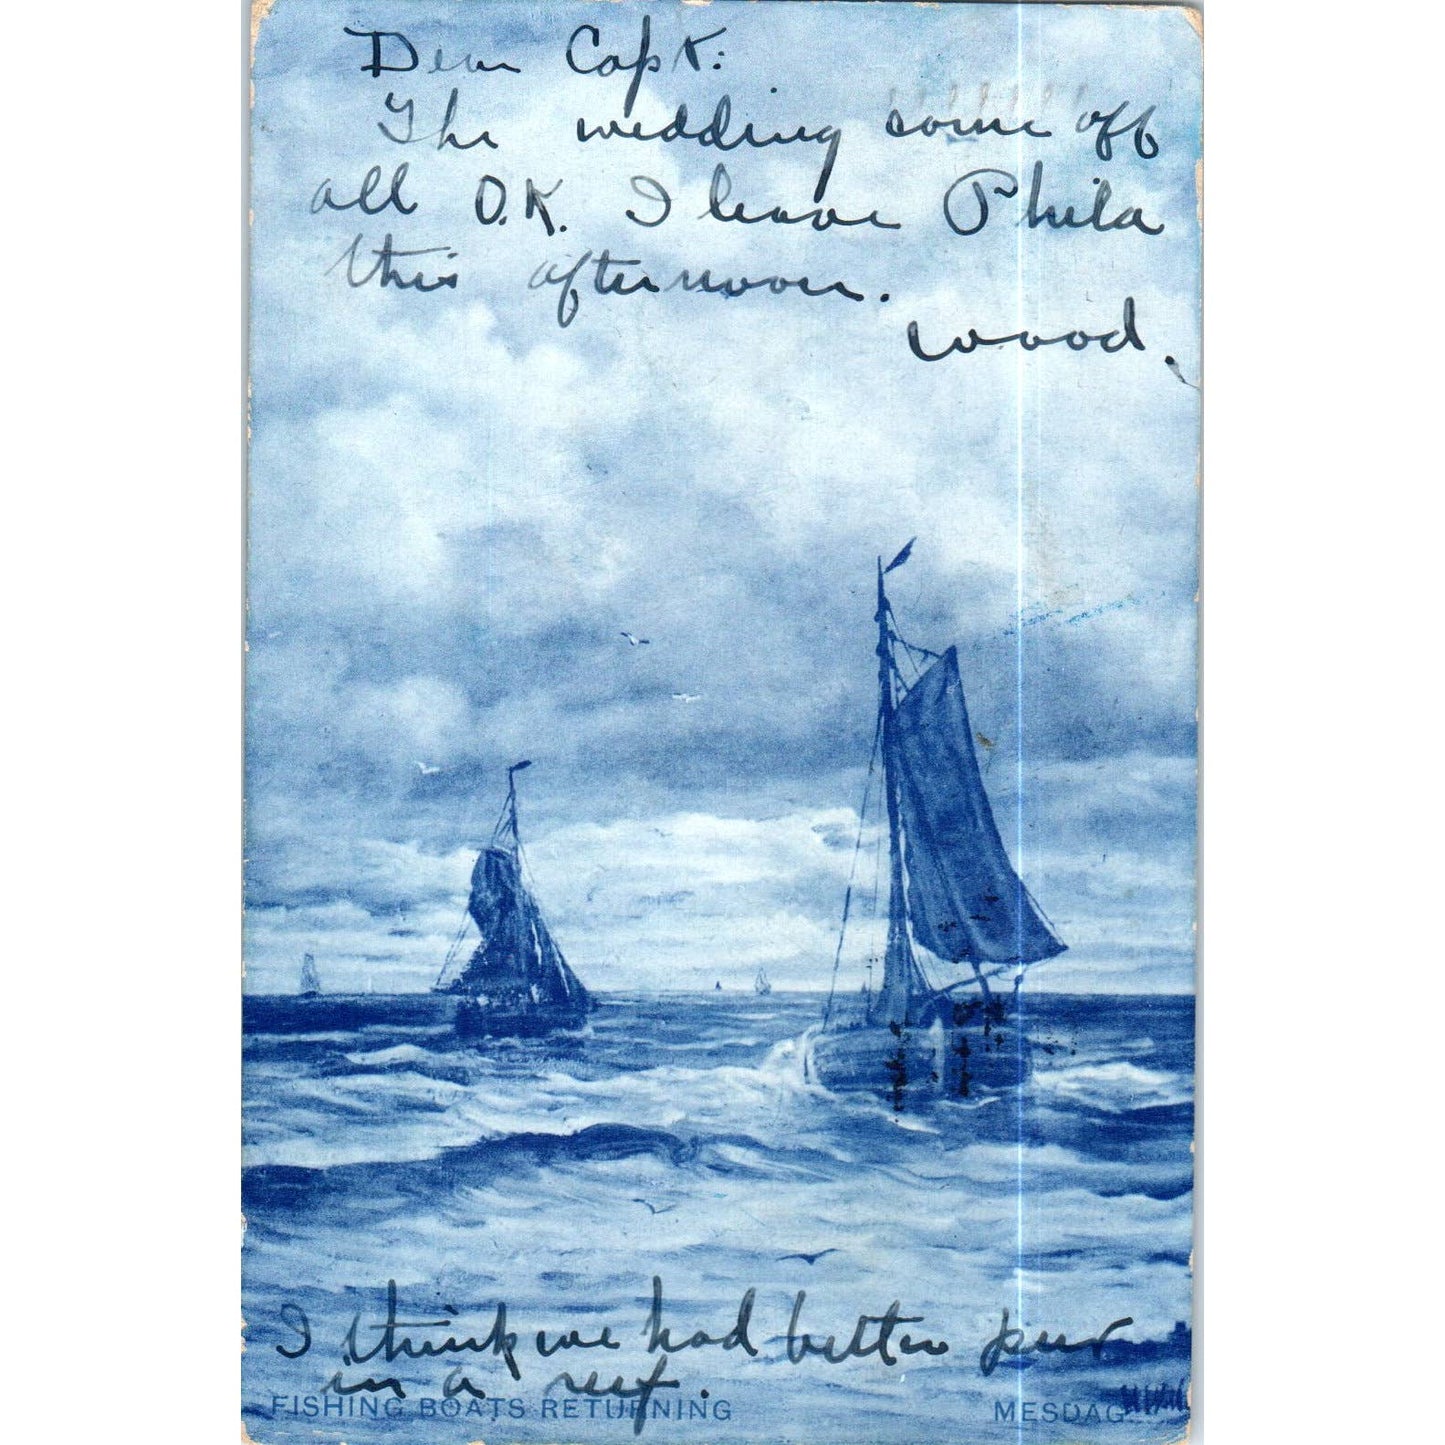 Dear Capt:
The wedding came off
all O.K. I leave Phila
this afternoon.
Wood.
I think we had better put
in a reef.
FISHING BOATS RETURNING
MESDAG